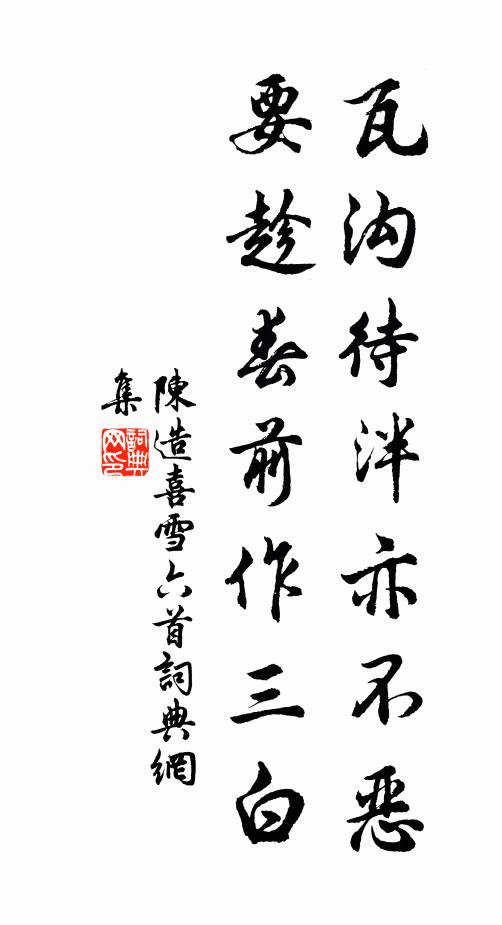 瓦沟待泮亦不惡
要趁春前作三白
陳造喜雪六首詞典網
集
詞典网印